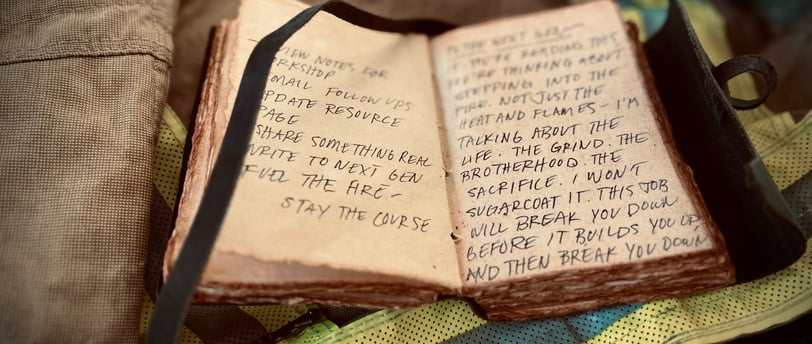 VIEW NOTES FOR
WORKSHOP
EMAIL FOLLOW UPS
UPDATE RESOURCE
PAGE
SHARE SOMETHING REAL
WRITE TO NEXT GEN
FUEL THE FIRE-
STAY THE COURSE
TO THE NEXT GEN-
IF YOU'RE READING THIS
YOU'RE THINKING ABOUT
STEPPING INTO THE
FIRE. NOT JUST THE
HEAT AND FLAMES - I'M
TALKING ABOUT THE
LIFE. THE GRIND. THE
BROTHERHOOD. THE
SACRIFICE. I WON'T
SUGARCOAT IT. THIS JOB
WILL BREAK YOU DOWN
BEFORE IT BUILDS YOU UP,
AND THEN BREAK YOU DOWN